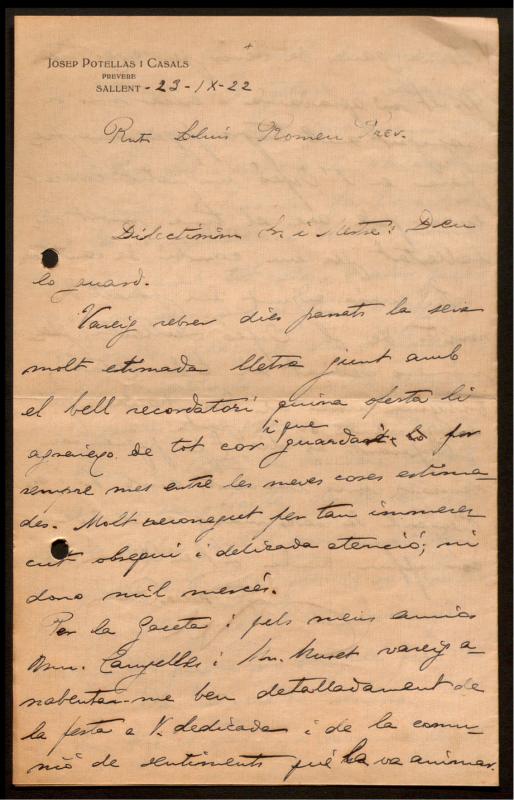 JOSEP POTELLAS I CASALS
PREVERE
SALLENT - 23-IX-22
Lluis Romeu Prev.
Dilectíssim Sr i Mestre: Deu
lo guard.
Vareig rebrer dies passats la seva
molt estimada lletra junt amb
el bell recordatori quina oferta li
agraeixo de tot cor, i que guardaré per
sempre mes entre les meves coses estima-
des. Molt reconegut per tan immeres-
cut obsequi i delicada atenció; ni
dono mil mercés.
Per la Gaceta i pels meus amics
Mn. i Mn. Muset vareig a-
ssabentar-me ben detalladament de
la festa a V. dedicada i de la comu-
nió de sentiments que la va animar.